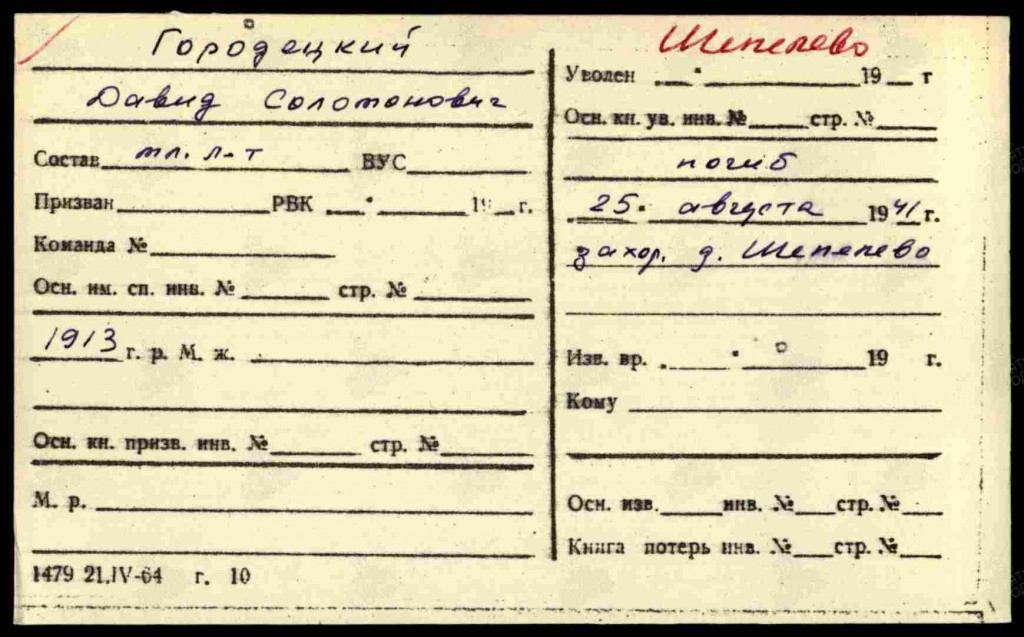 Городецкий
Давид Соломонович
Состав мл. л-т ВУС
Призван РВК 19 г.
Команда №
Осн. им. сп. инв. № стр. №
1913 г. р. М. ж.
Осн. кн. призв. инв. № стр. №
М. р.
1479 21.IV-64 г. 10
Шепелево
Уволен 19 г
Осн. кн. ув. инв. № стр. №
погиб
25 августа 1941 г.
захор. д. Шепелево
Изв. вр. 19 г.
Кому
Осн. изв. инв. № стр. №
Книга потерь инв. № стр. №